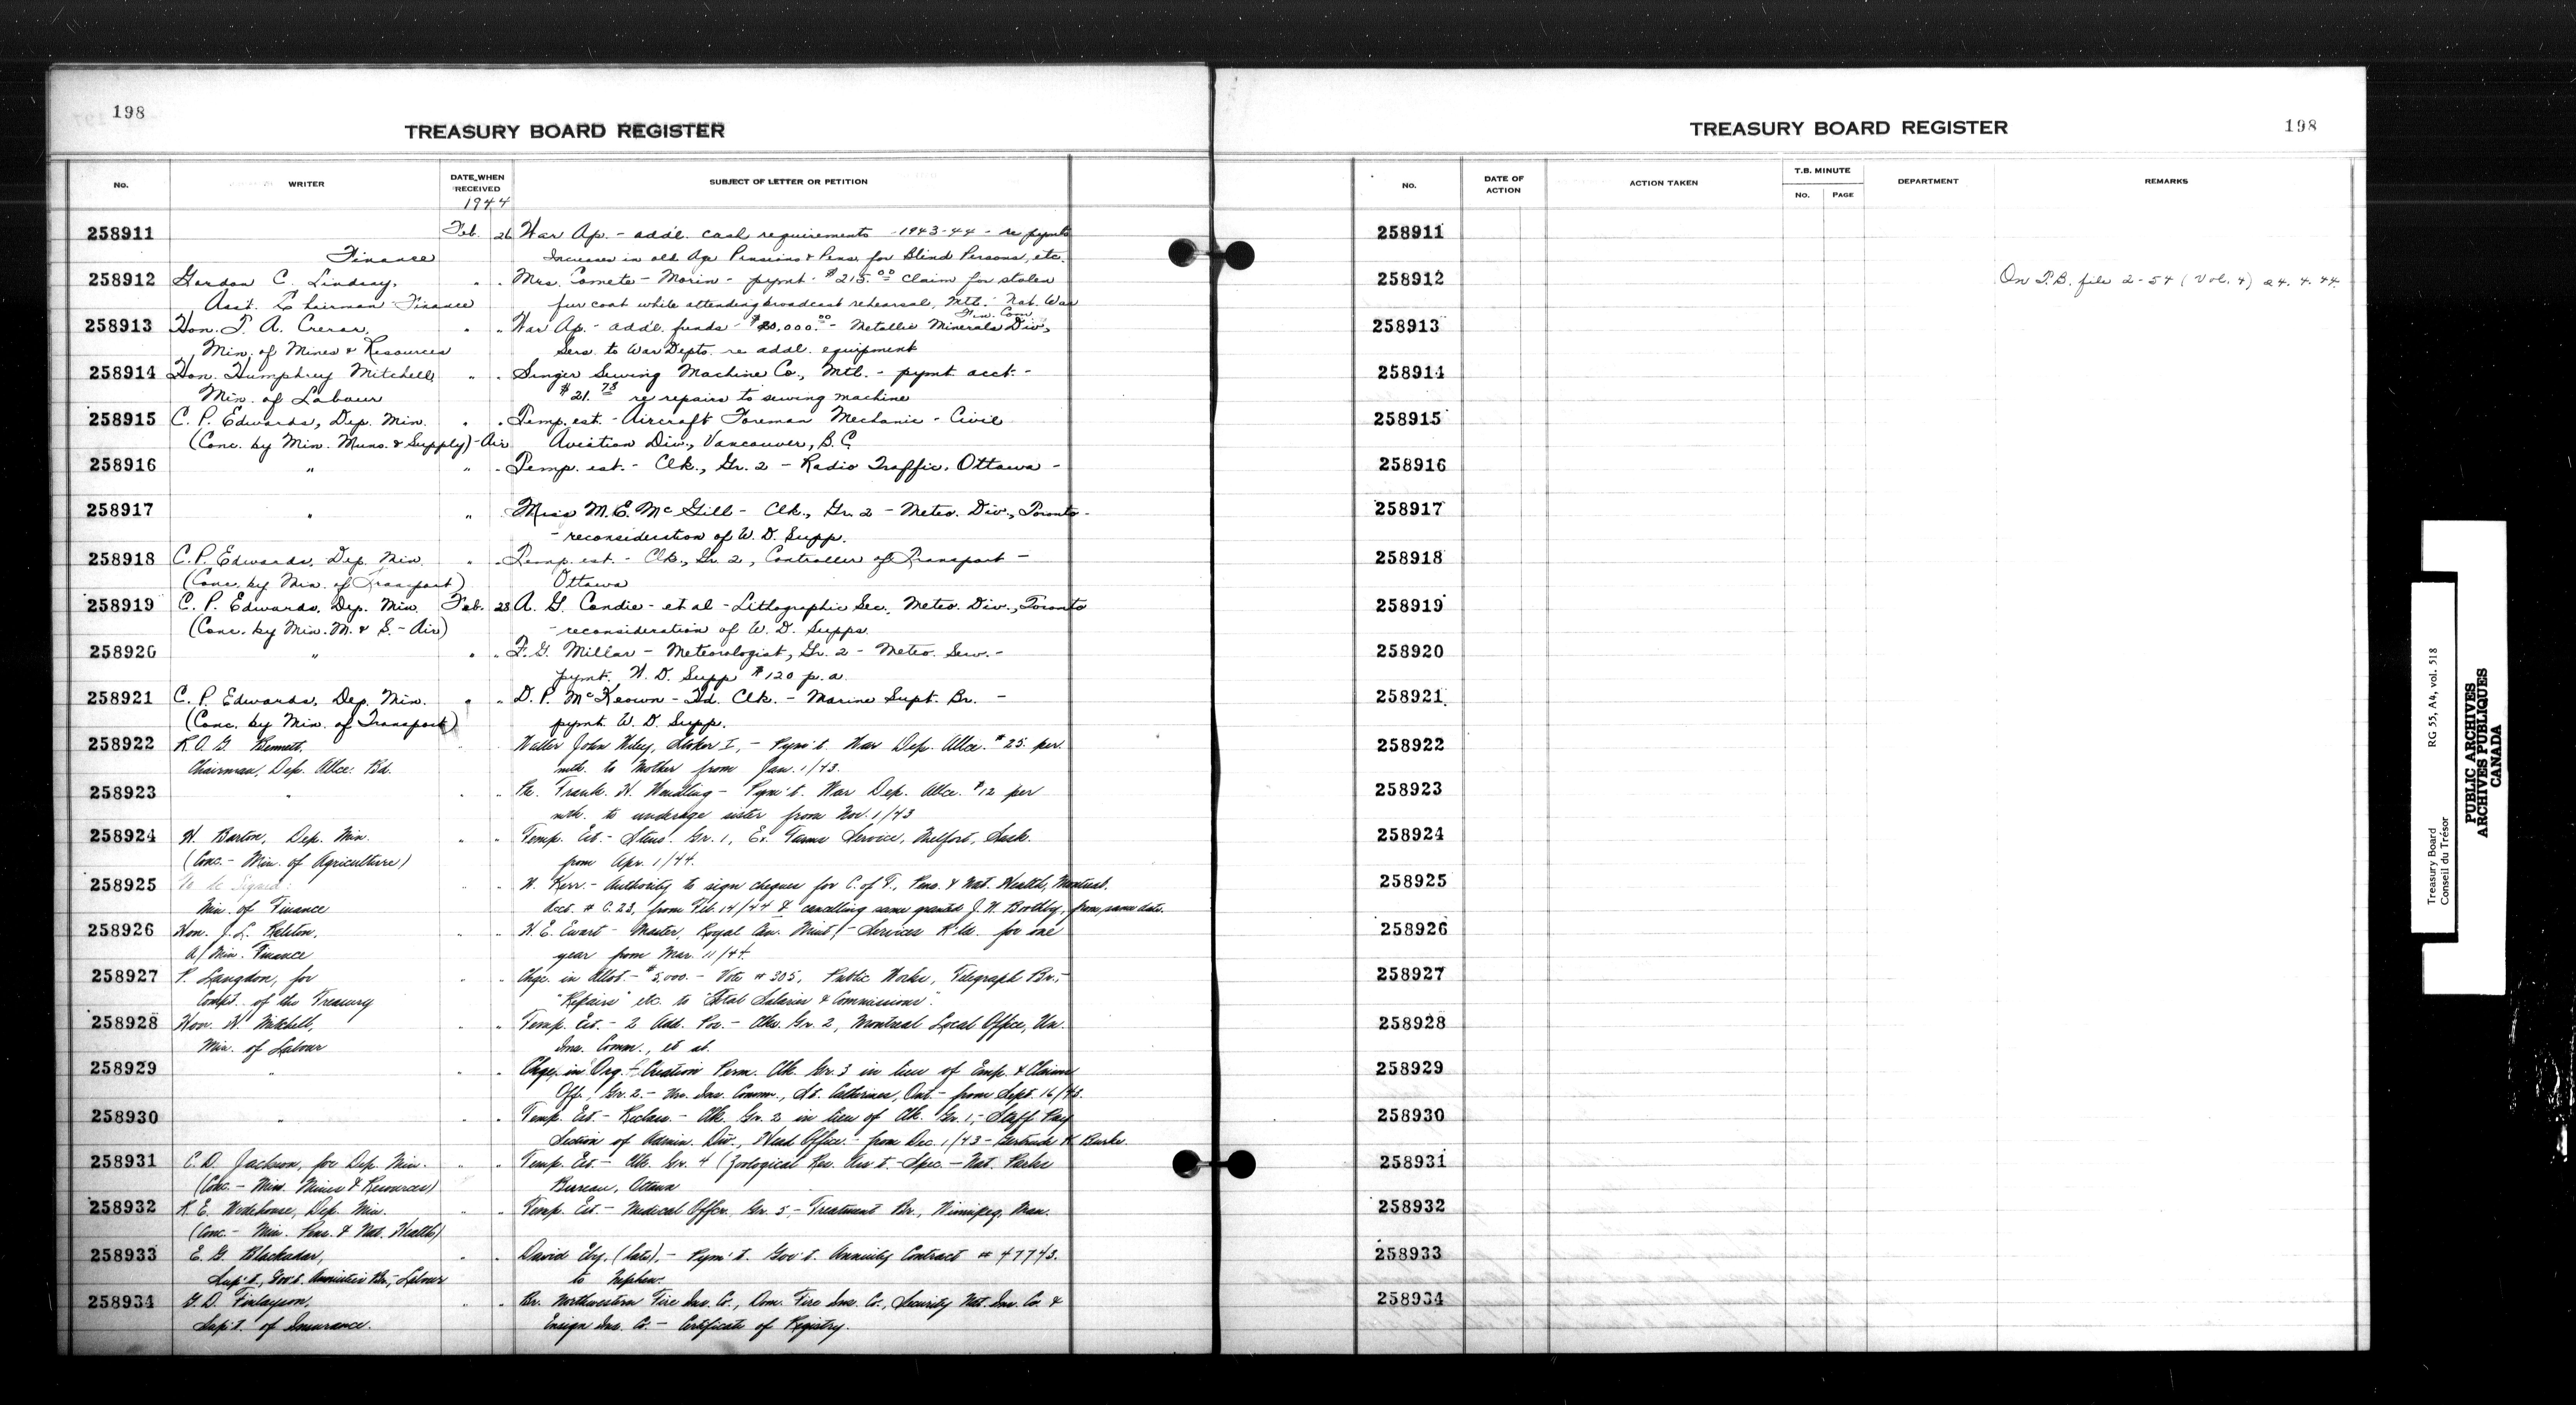 198
TREASURY BOARD REGISTER
No. WRITER DATE WHEN RECEIVED SUBJECT OF LETTER OR PETITION
1944
258911 Feb. 26 War Ap. - add'l. cash requirements - 1943-44 - re pymts
Finance Increases in old Age Pensions & Pens. for Blind Persons, etc.
258912 Gordon C. Lindsay, " " Mrs. Comete - Morin - pymt. $215.00 claim for stolen
Asst. Chairman Finance fur coat while attending broadcast rehearsal, Mtl. - Nat. War
Fin. Com.
258913 Hon. T. A. Crerar, " " War Ap. - add'l. funds - $80,000.00 - Metallic Minerals Div.,
Min. of Mines & Resources Serv. to War Depts. re addl. equipment
258914 Hon. Humphrey Mitchell " " Singer Sewing Machine Co., Mtl. - pymt. acct. -
Min. of Labour $21.78 re repairs to sewing machine
258915 C. P. Edwards, Dep. Min. " " Temp. est. - Aircraft Foreman Mechanic - Civil
(Conc. by Min. Muns. & Supply) - Air Aviation Div., Vancouver, B.C.
258916 " " " Temp. est. - Clk., Gr. 2 - Radio Traffic, Ottawa -
258917 " " " Miss M. E. McGill - Clk., Gr. 2 - Meteo. Div., Toronto -
- reconsideration of W. D. Supp.
258918 C. P. Edwards, Dep. Min. " " Temp. est. - Clk., Gr. 2, Controller of Transport -
(Conc. by Min. of Transport) Ottawa
258919 C. P. Edwards, Dep. Min. Feb. 28 A. G. Condie - et al - Lithographic Sec., Meteo. Div., Toronto
(Conc. by Min. M. & S. - Air) - reconsideration of W. D. Supps.
258920 " " " F. G. Millar - Meteorologist, Gr. 2 - Meteo. Serv. -
pymt. W. D. Supp $120 p.a.
258921 C. P. Edwards, Dep. Min. " " D. P. McKeown - Hd. Clk. - Marine Supt. Br. -
(Conc. by Min. of Transport) pymt. W. D. Supp.
258922 R.O.G. Bennett, " " Walter John Wiley, Stoker I, - Pym't. War Dep. Allce. $25. per.
Chairman, Dep. Allce. Bd. mth. to Mother from Jan. 1/43.
258923 " " " Pte. Frank. H. Wendling - Pym't. War Dep. Allce. $12 per
mth. to underage sister from Nov. 1/43
258924 H. Barton, Dep. Min. " " Temp. Est. - Steno. Gr. 1, Ex. Farms Service, Melfort, Sask.
(Conc. - Min. of Agriculture) from Apr. 1/44.
258925 To be Signed: " " H. Kerr. - Authority to sign cheques for C. of T., Pens. & Nat. Health, Montreal.
Min. of Finance Acct. # C. 23, from Feb. 14/44 & cancelling same granted J. H. Boothby, from same date.
258926 Hon. J. L. Ralston, " " H. E. Ewart - Master, Royal Can. Mint, - Services for one
A/Min. Finance year from Mar. 11/44.
258927 P. Langdon, for " " Chge. in Allot. - $5,000. - Vote # 305, Public Works, Telegraph Br., -
Compt. of the Treasury "Repairs" etc. to "Total Salaries & Commissions".
258928 Hon. H. Mitchell, " " Temp. Est. - 2 Add. Pos. - Clks. Gr. 2, Montreal Local Office, Un.
Min. of Labour Ins. Comm., et al.
258929 " " " Chge. in Org. - Creation Perm. Clk. Gr. 3 in lieu of Emp. & Claims
Off., Gr. 2. - Un. Ins. Comm., St. Catharines, Ont. - from Sept. 16/43.
258930 " " " Temp. Est. - Reclass - Clk. Gr. 2 in lieu of Clk. Gr. 1, - Staff Pay
Section of Admin. Div., Head Office. - from Dec. 1/43 - Gertrude K. Burke.
258931 C. D. Jackson, for Dep. Min. " " Temp. Est. - Clk. Gr. 4 (Zoological Res. Ass't. - Spec. - Nat. Parks
(Conc. - Min. Mines & Resources) Bureau, Ottawa
258932 R. E. Wodehouse, Dep. Min. " " Temp. Est. - Medical Officer Gr. 5, - Treatment Br., Winnipeg, Man.
(Conc. - Min. Pens. & Nat. Health)
258933 E. G. Blackadar, " " David Eby, (late), - Pym't. Gov't. Annuity Contract # 47743.
Sup't., Gov't. Annuities Br., - Labour to Nephew.
258934 G. D. Finlayson, " " Re. Northwestern Fire Ins. Co., Dom. Fire Ins. Co., Security Nat. Ins. Co. &
Sup't. of Insurance. Ensign Ins. Co. - Certificate of Registry.
TREASURY BOARD REGISTER 198
No. DATE OF ACTION ACTION TAKEN T.B. MINUTE NO. PAGE DEPARTMENT REMARKS
258911
258912 On T.B. file 2-54 (Vol. 4) 24.4.44.
258913
258914
258915
258916
258917
258918
258919
258920
258921
258922
258923
258924
258925
258926
258927
258928
258929
258930
258931
258932
258933
258934
Treasury Board RG 55, A4, vol. 518
Conseil du Trésor
PUBLIC ARCHIVES
ARCHIVES PUBLIQUES
CANADA